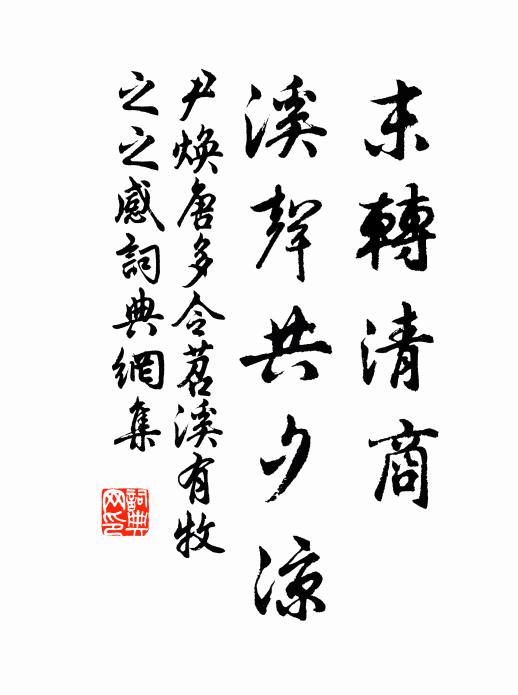 末轉清商
溪聲共夕凉
尹焕唐多令苕溪有牧
之之感詞典網集
詞典网印